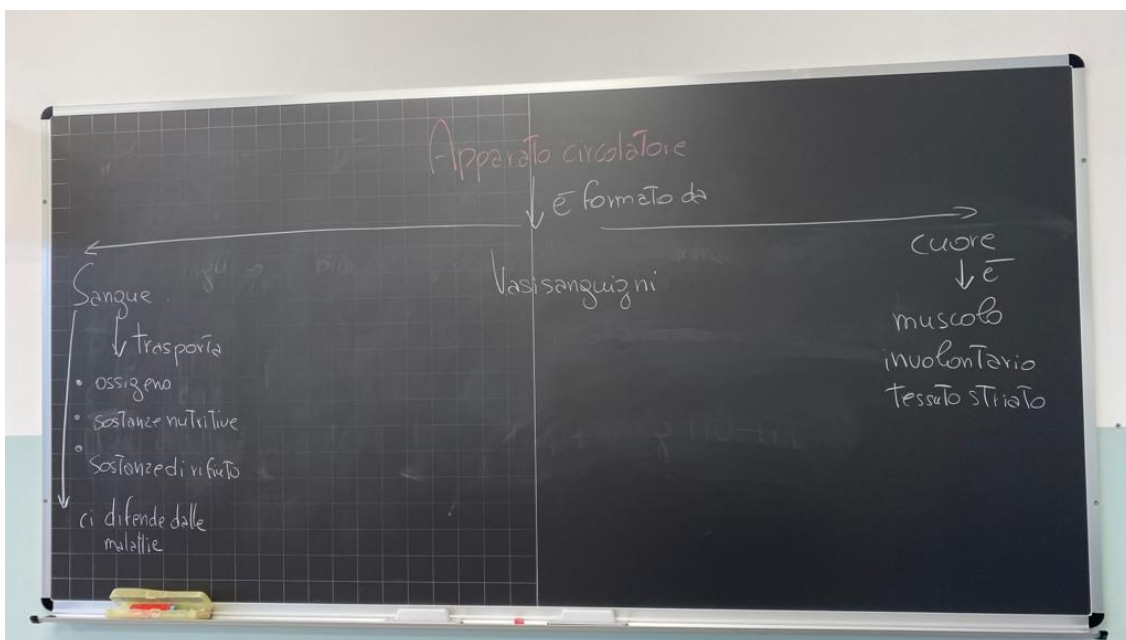 Apparato circolatore
è formato da
Sangue
trasporta
• ossigeno
• sostanze nutritive
• sostanze di rifiuto
ci difende dalle
malattie
Vasi sanguigni
cuore
è
muscolo
involontario
tessuto striato